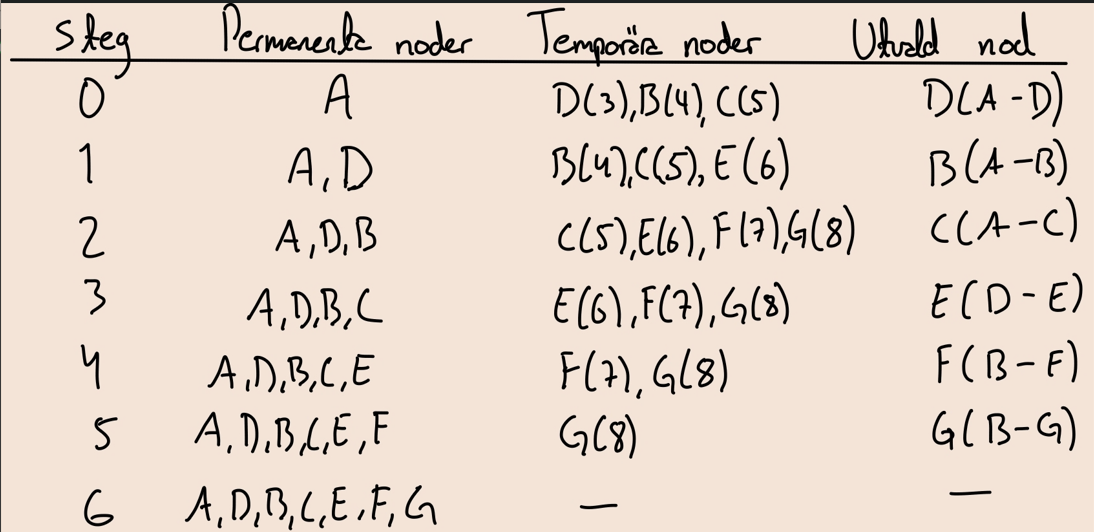 Steg Permanenta noder Temporära noder Utvald nod
0 A D(3),B(4),C(5) D(A-D)
1 A,D B(4),C(5),E(6) B(A-B)
2 A,D,B C(5),E(6),F(7),G(8) C(A-C)
3 A,D,B,C E(6),F(7),G(8) E(D-E)
4 A,D,B,C,E F(7),G(8) F(B-F)
5 A,D,B,C,E,F G(8) G(B-G)
6 A,D,B,C,E,F,G — —